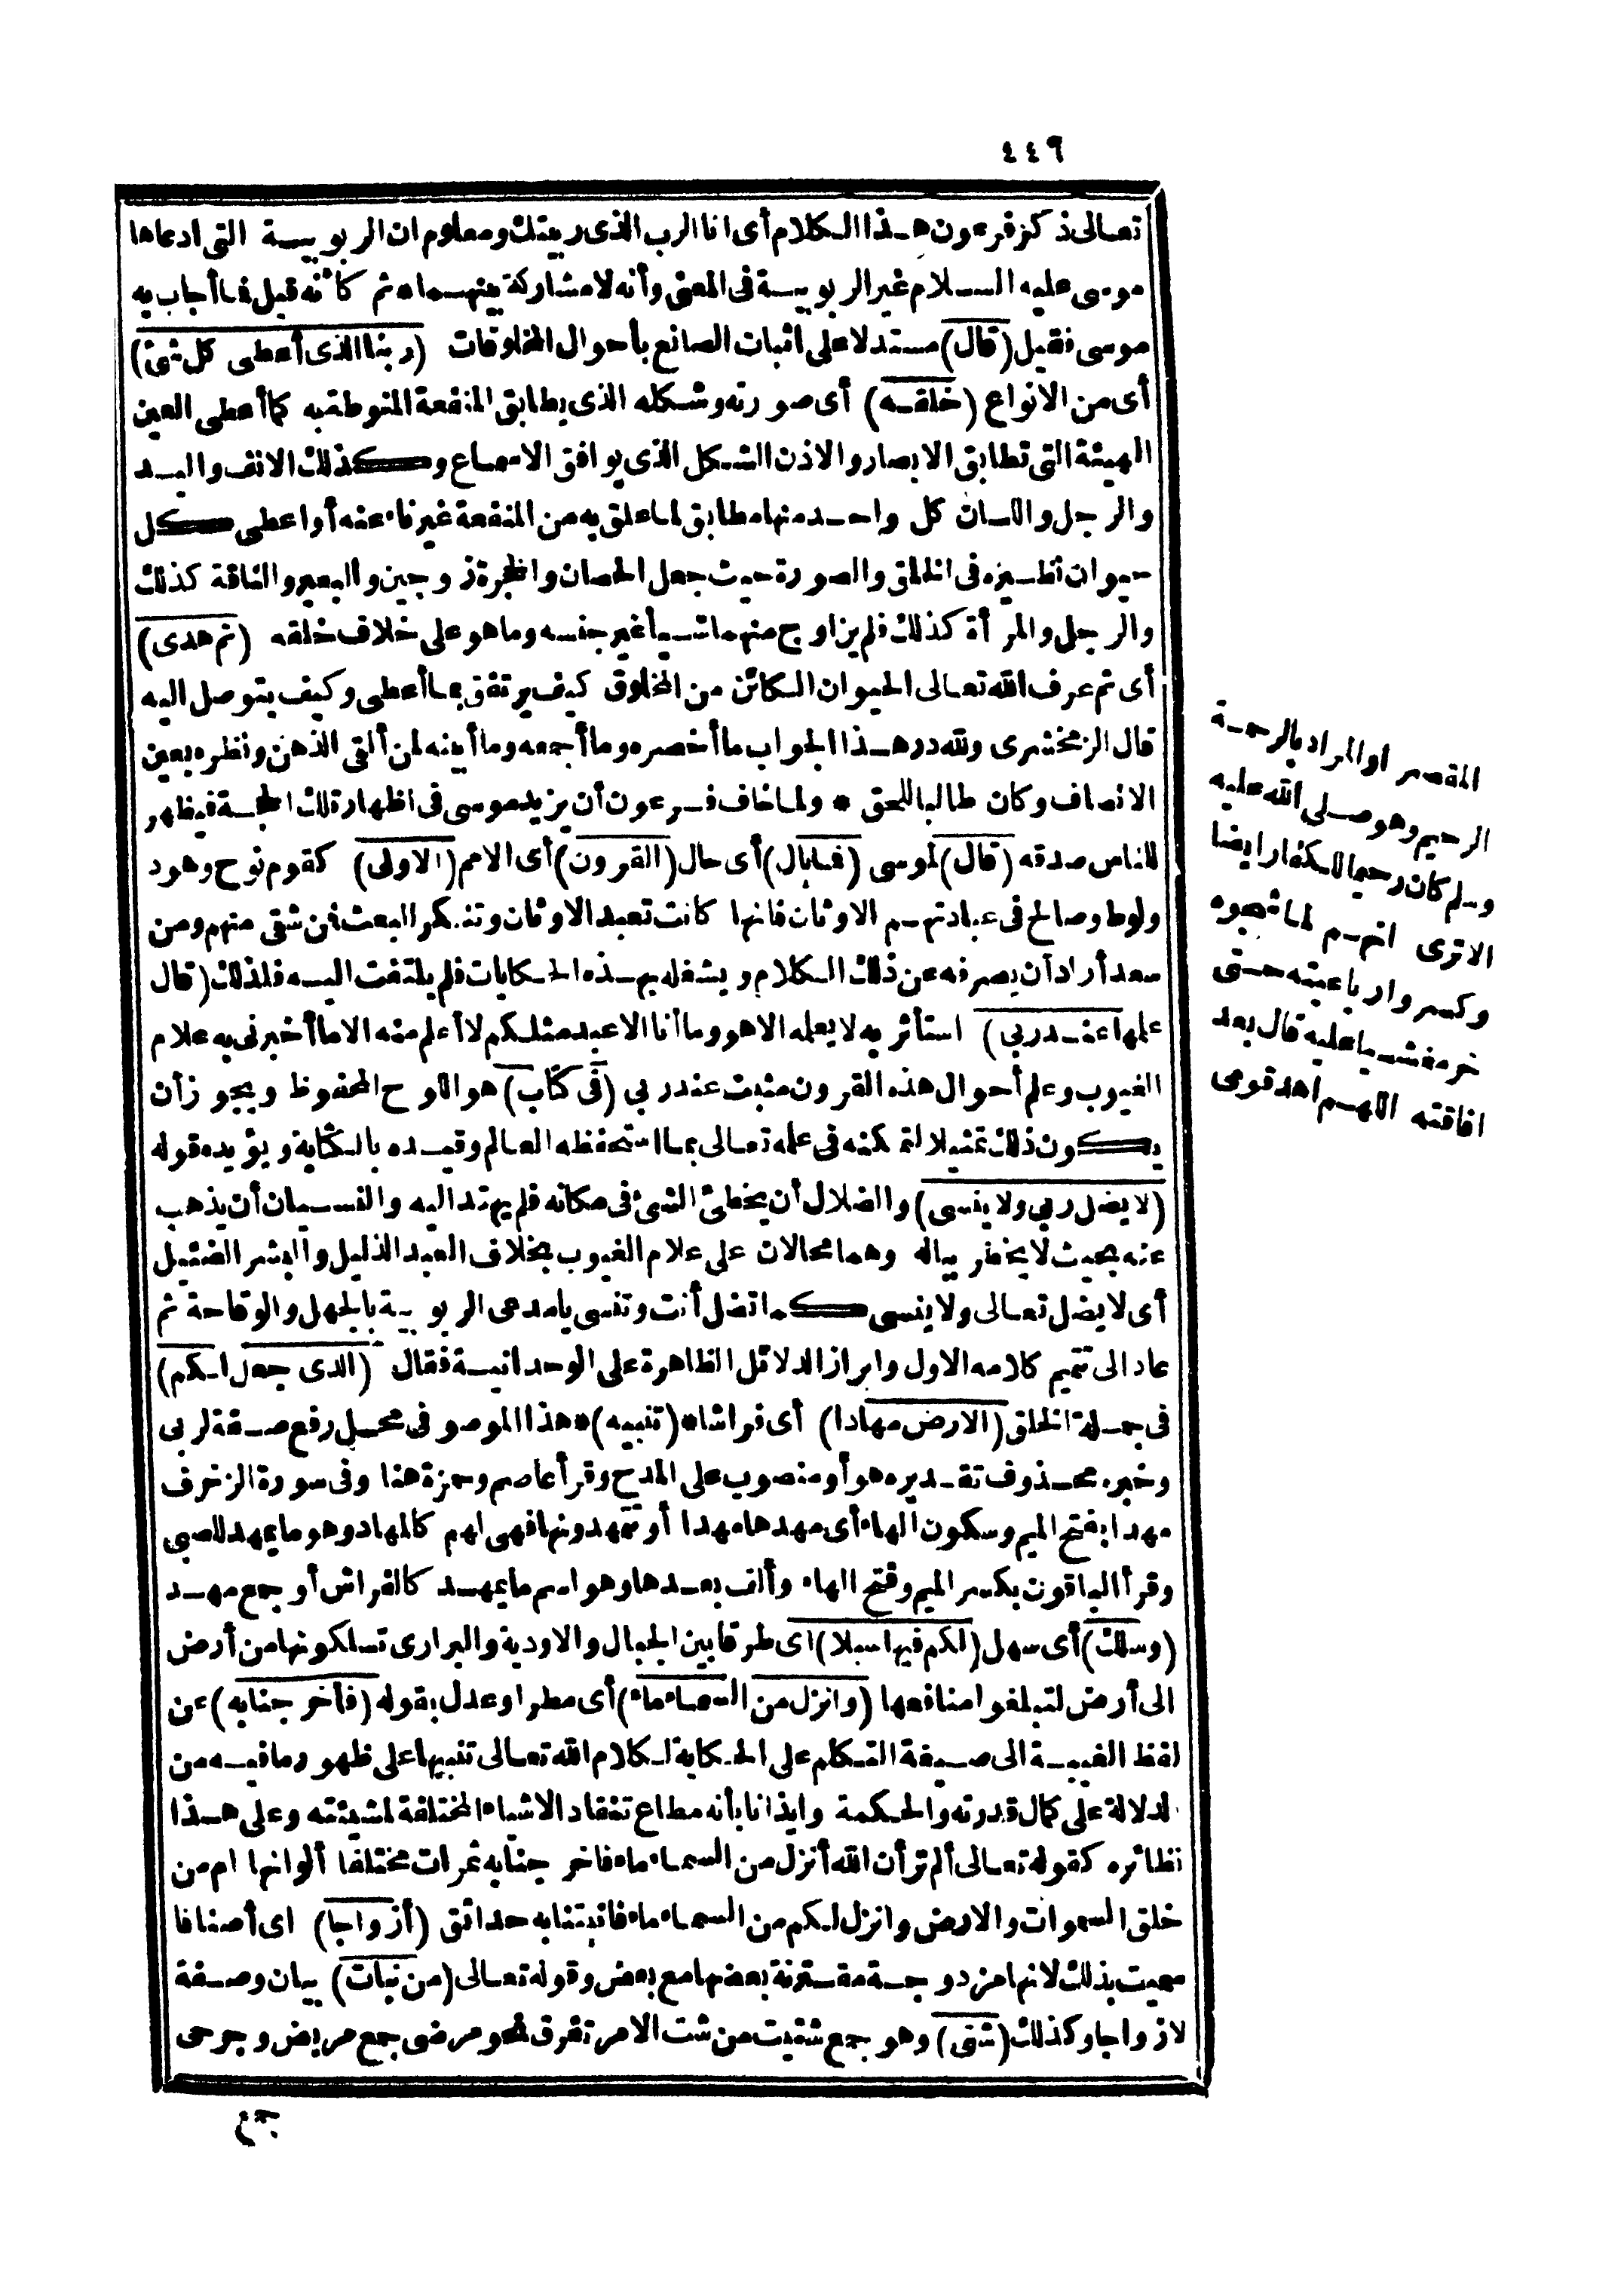 ٤٤٩
تعالى ذكر فرعون هذا الكلام أى انا الرب الذى ربيتك ومعلوم ان الربوبية التى ادعاها
موسى عليه السلام غير الربوبية فى المعنى وأنه لا مشاركة بينهما ثم كأنه قيل فما أجاب به
موسى فقيل (قال) مستدلا على اثبات الصانع بأحوال المخلوقات (ربنا الذى أعطى كل شئ)
أى من الانواع (خلقه) أى صورته وشكله الذى يطابق المنفعة المنوطة به كما أعطى العين
الهيئة التى تطابق الابصار والاذن الشكل الذى يوافق الاسماع وكذلك الانف واليد
والرجل واللسان كل واحد منها مطابق لما علق به من المنفعة غير ناء عنه أو اعطى كل
حيوان نظيره فى الخلق والصورة حيث جعل الحصان والحجرة زوجين والبعير والناقة كذلك
والرجل والمرأة كذلك فلم يزاوج منهما شيأ غير جنسه وما هو على خلاف خلقه (ثم هدى)
أى ثم عرف الله تعالى الحيوان الكائن من المخلوق كيف يرتفق بما أعطى وكيف يتوصل اليه
قال الزمخشرى ولله در هذا الجواب ما أخصره وما أجمعه وما أبينه لمن ألقى الذهن ونظره بعين
الانصاف وكان طالبا للحق * ولما خاف فرعون أن يزيد موسى فى اظهار تلك الحجة فيظهر
للناس صدقه (قال) لموسى (فما بال) أى حال (القرون) أى الامم (الاولى) كقوم نوح وهود
ولوط وصالح فى عبادتهم الاوثان فانها كانت تعبد الاوثان وتنكر البعث فمن شقى منهم ومن
سعد أراد أن يصرفه عن ذلك الكلام ويشغله بهذه الحكايات فلم يلتفت اليه فلذلك (قال
علمها عند ربى) استأثر به لا يعلمه الا هو وما أنا الا عبد مثلكم لا أعلم منه الا ما أخبرنى به علام
الغيوب وعلم أحوال هذه القرون مثبت عند ربى (فى كتاب) هو اللوح المحفوظ ويجوز أن
يكون ذلك تمثيلا لتمكنه فى علمه تعالى بما استحفظه العالم وقيده بالكتابة ويؤيده قوله
(لا يضل ربى ولا ينسى) والضلال أن يخطئ الشئ فى مكانه فلم يهتد اليه والنسيان أن يذهب
عنه بحيث لا يخطر بباله وهما محالان على علام الغيوب بخلاف العبد الذليل والبشر الضئيل
أى لا يضل تعالى ولا ينسى كما تضل أنت وتنسى يا مدعى الربوبية بالجهل والوقاحة ثم
عاد الى تتميم كلامه الاول وابراز الدلائل الظاهرة على الوحدانية فقال (الذى جعل لكم)
فى جملة الخلق (الارض مهادا) أى فراشا* (تنبيه)* هذا الموصو فى محل رفع صفة لربى
وخبره محذوف تقديره هو أو منصوب على المدح وقرأ عاصم وحمزة هنا وفى سورة الزخرف
مهدا بفتح الميم وسكون الهاء أى مهدها مهدا أو تتمهدونها فهى لهم كالمهاد وهو ما يمهد للصبى
وقرأ الباقون بكسر الميم وفتح الهاء وألف بعدها وهو اسم ما يمهد كالفراش أو جمع مهد
(وسلك) أى سهل (لكم فيها سبلا) اى طرقا بين الجبال والاودية والبرارى تسلكونها من أرض
الى أرض لتبلغوا منافعها (وانزل من السماء ماء) أى مطرا وعدل بقوله (فأخرجنا به) عن
لفظ الغيبة الى صيغة التكلم على الحكاية لكلام الله تعالى تنبيها على ظهور ما فيه من
الدلالة على كمال قدرته والحكمة وايذانا بأنه مطاع تنقاد الاشياء المختلفة لمشيئته وعلى هذا
نظائره كقوله تعالى ألم تر أن الله أنزل من السماء ماء فاخرجنا به ثمرات مختلفا ألوانها ام من
خلق السموات والارض وانزل لكم من السماء ماء فانبتنا به حدائق (أزواجا) اى أصنافا
سميت بذلك لانها مزدوجة مقترنة بعضها مع بعض وقوله تعالى (من نبات) بيان وصفة
لازواجا وكذلك (شتى) وهو جمع شتيت من شت الامر تفرق نحو مرضى جمع مريض وجرحى
المقصر او المراد بالرحمة
الرحيم وهو صلى الله عليه
وسلم كان رحيما للكفار ايضا
الا ترى انهم لما شجوه
وكسروا رباعيته حتى
خر مغشيا عليه قال بعد
افاقته اللهم اهد قومى